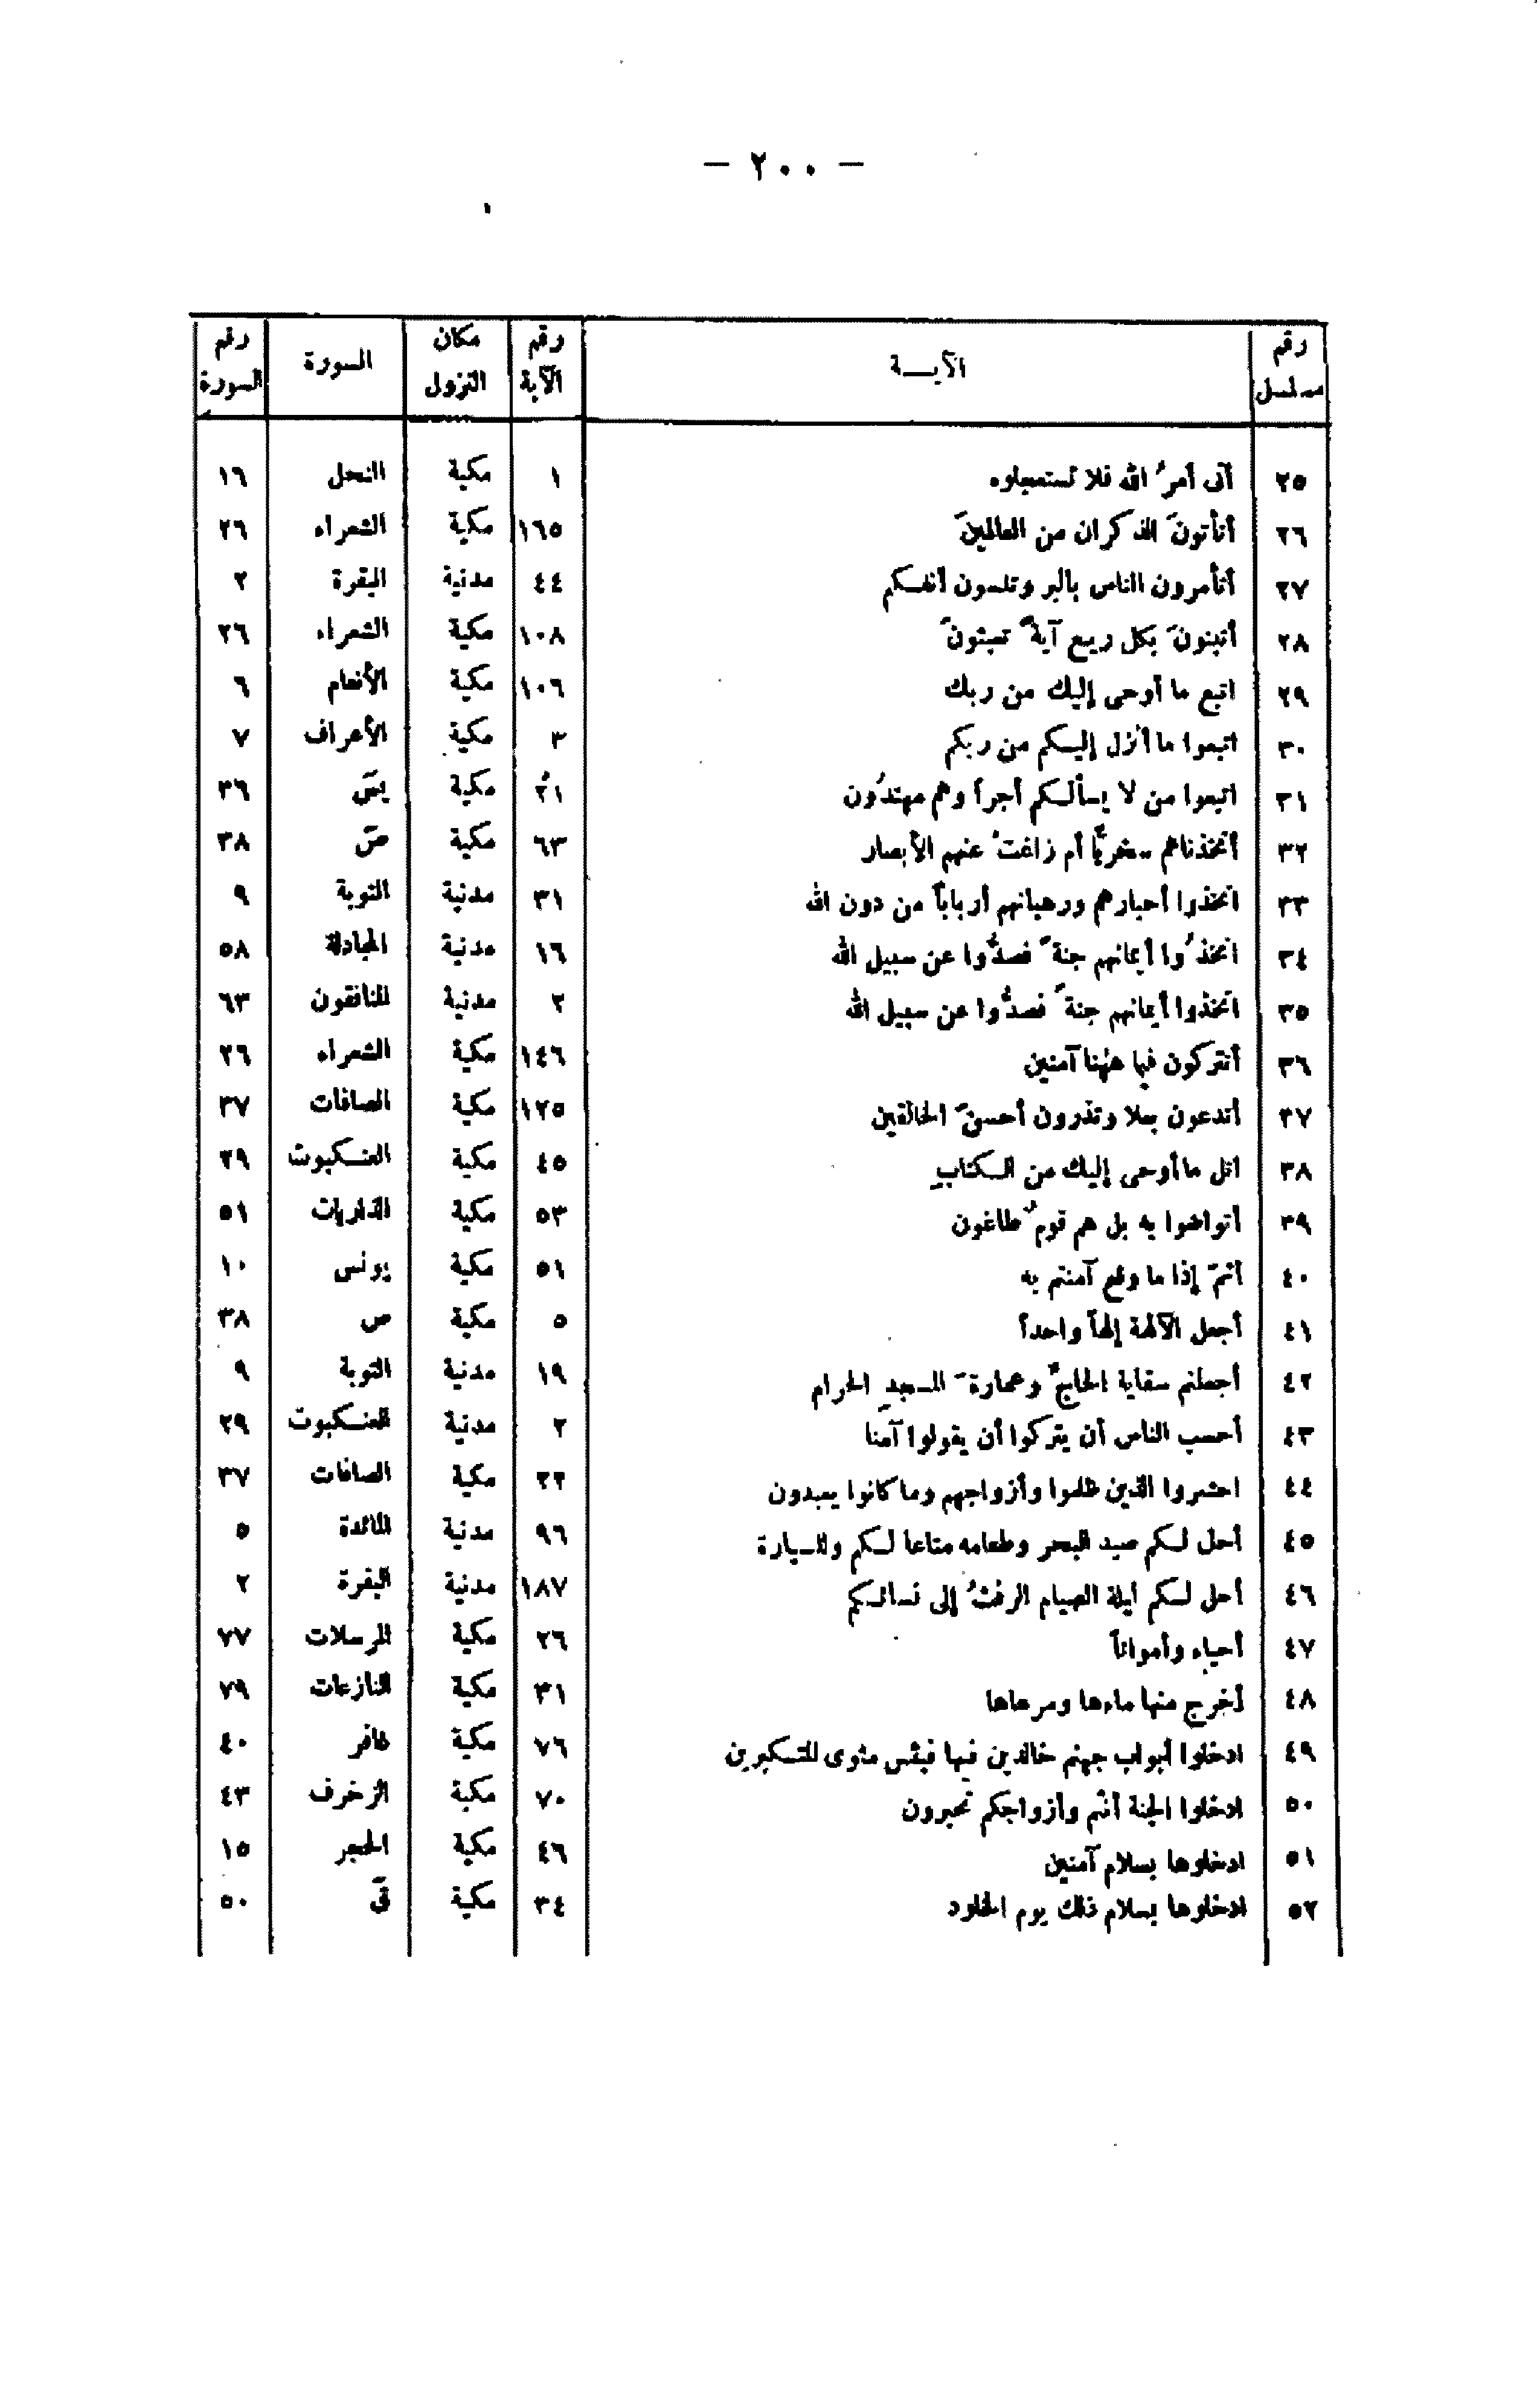 — ٢٠٠ —
رقم مسلسل | الآيــة | رقم الآية | مكان النزول | السورة | رقم السورة
٢٥ | أتى أمرُ الله فلا تستعجلوه | ١ | مكية | النحل | ١٦
٢٦ | أتأتونَ الذكران من العالمينَ | ١٦٥ | مكية | الشعراء | ٢٦
٢٧ | أتأمرون الناس بالبر وتنسون أنفسكم | ٤٤ | مدنية | البقرة | ٢
٢٨ | أتبنونَ بكل ريع آيةً تعبثونَ | ١٠٨ | مكية | الشعراء | ٢٦
٢٩ | اتبع ما أوحى إليك من ربك | ١٠٦ | مكية | الأنعام | ٦
٣٠ | اتبعوا ما أنزل إليكم من ربكم | ٣ | مكية | الأعراف | ٧
٣١ | اتبعوا من لا يسألكم أجراً وهم مهتدُون | ٢١ | مكية | يسَ | ٣٦
٣٢ | أتخذناهم سخريًّا أم زاغتْ عنهم الأبصار | ٦٣ | مكية | صَ | ٣٨
٣٣ | اتخذوا أحبارهم ورهبانهم أرباباً من دون الله | ٣١ | مدنية | التوبة | ٩
٣٤ | اتخذُوا أيمانهم جنةً فصدُّوا عن سبيل الله | ١٦ | مدنية | المجادلة | ٥٨
٣٥ | اتخذوا أيمانهم جنةً فصدُّوا عن سبيل الله | ٢ | مدنية | المنافقون | ٦٣
٣٦ | أتتركون فيما ههُنا آمنين | ١٤٦ | مكية | الشعراء | ٢٦
٣٧ | أتدعون بعلا وتذرون أحسنَ الخالقين | ١٢٥ | مكية | الصافات | ٣٧
٣٨ | اتل ما أوحى إليك من الكتابِ | ٤٥ | مكية | العنكبوت | ٢٩
٣٩ | أتواصوا به بل هم قومٌ طاغون | ٥٣ | مكية | الذاريات | ٥١
٤٠ | أثمّ إذا ما وقع آمنتم به | ٥١ | مكية | يونس | ١٠
٤١ | أجعل الآلهة إلهاً واحداً | ٥ | مكية | ص | ٣٨
٤٢ | أجعلتم سقاية الحاجِّ وعمارةَ المسجدِ الحرام | ١٩ | مدنية | التوبة | ٩
٤٣ | أحسب الناس أن يتركوا أن يقولوا آمنا | ٢ | مدنية | العنكبوت | ٢٩
٤٤ | احشروا الذين ظلموا وأزواجهم وما كانوا يعبدون | ٢٢ | مكية | الصافات | ٣٧
٤٥ | أحل لكم صيد البحر وطعامه متاعا لكم وللسيارة | ٩٦ | مدنية | المائدة | ٥
٤٦ | أحل لكم ليلة الصيام الرفثُ إلى نسائكم | ١٨٧ | مدنية | البقرة | ٢
٤٧ | أحياء وأمواتاً | ٢٦ | مكية | المرسلات | ٧٧
٤٨ | أخرج منها ماءها ومرعاها | ٣١ | مكية | النازعات | ٧٩
٤٩ | ادخلوا أبواب جهنم خالدين فيها فبئس مثوى المتكبرين | ٧٦ | مكية | غافر | ٤٠
٥٠ | ادخلوا الجنة أنتُم وأزواجكم تحبرون | ٧٠ | مكية | الزخرف | ٤٣
٥١ | ادخلوها بسلام آمنين | ٤٦ | مكية | الحجر | ١٥
٥٢ | ادخلوها بسلام ذلك يوم الخلود | ٣٤ | مكية | قَ | ٥٠